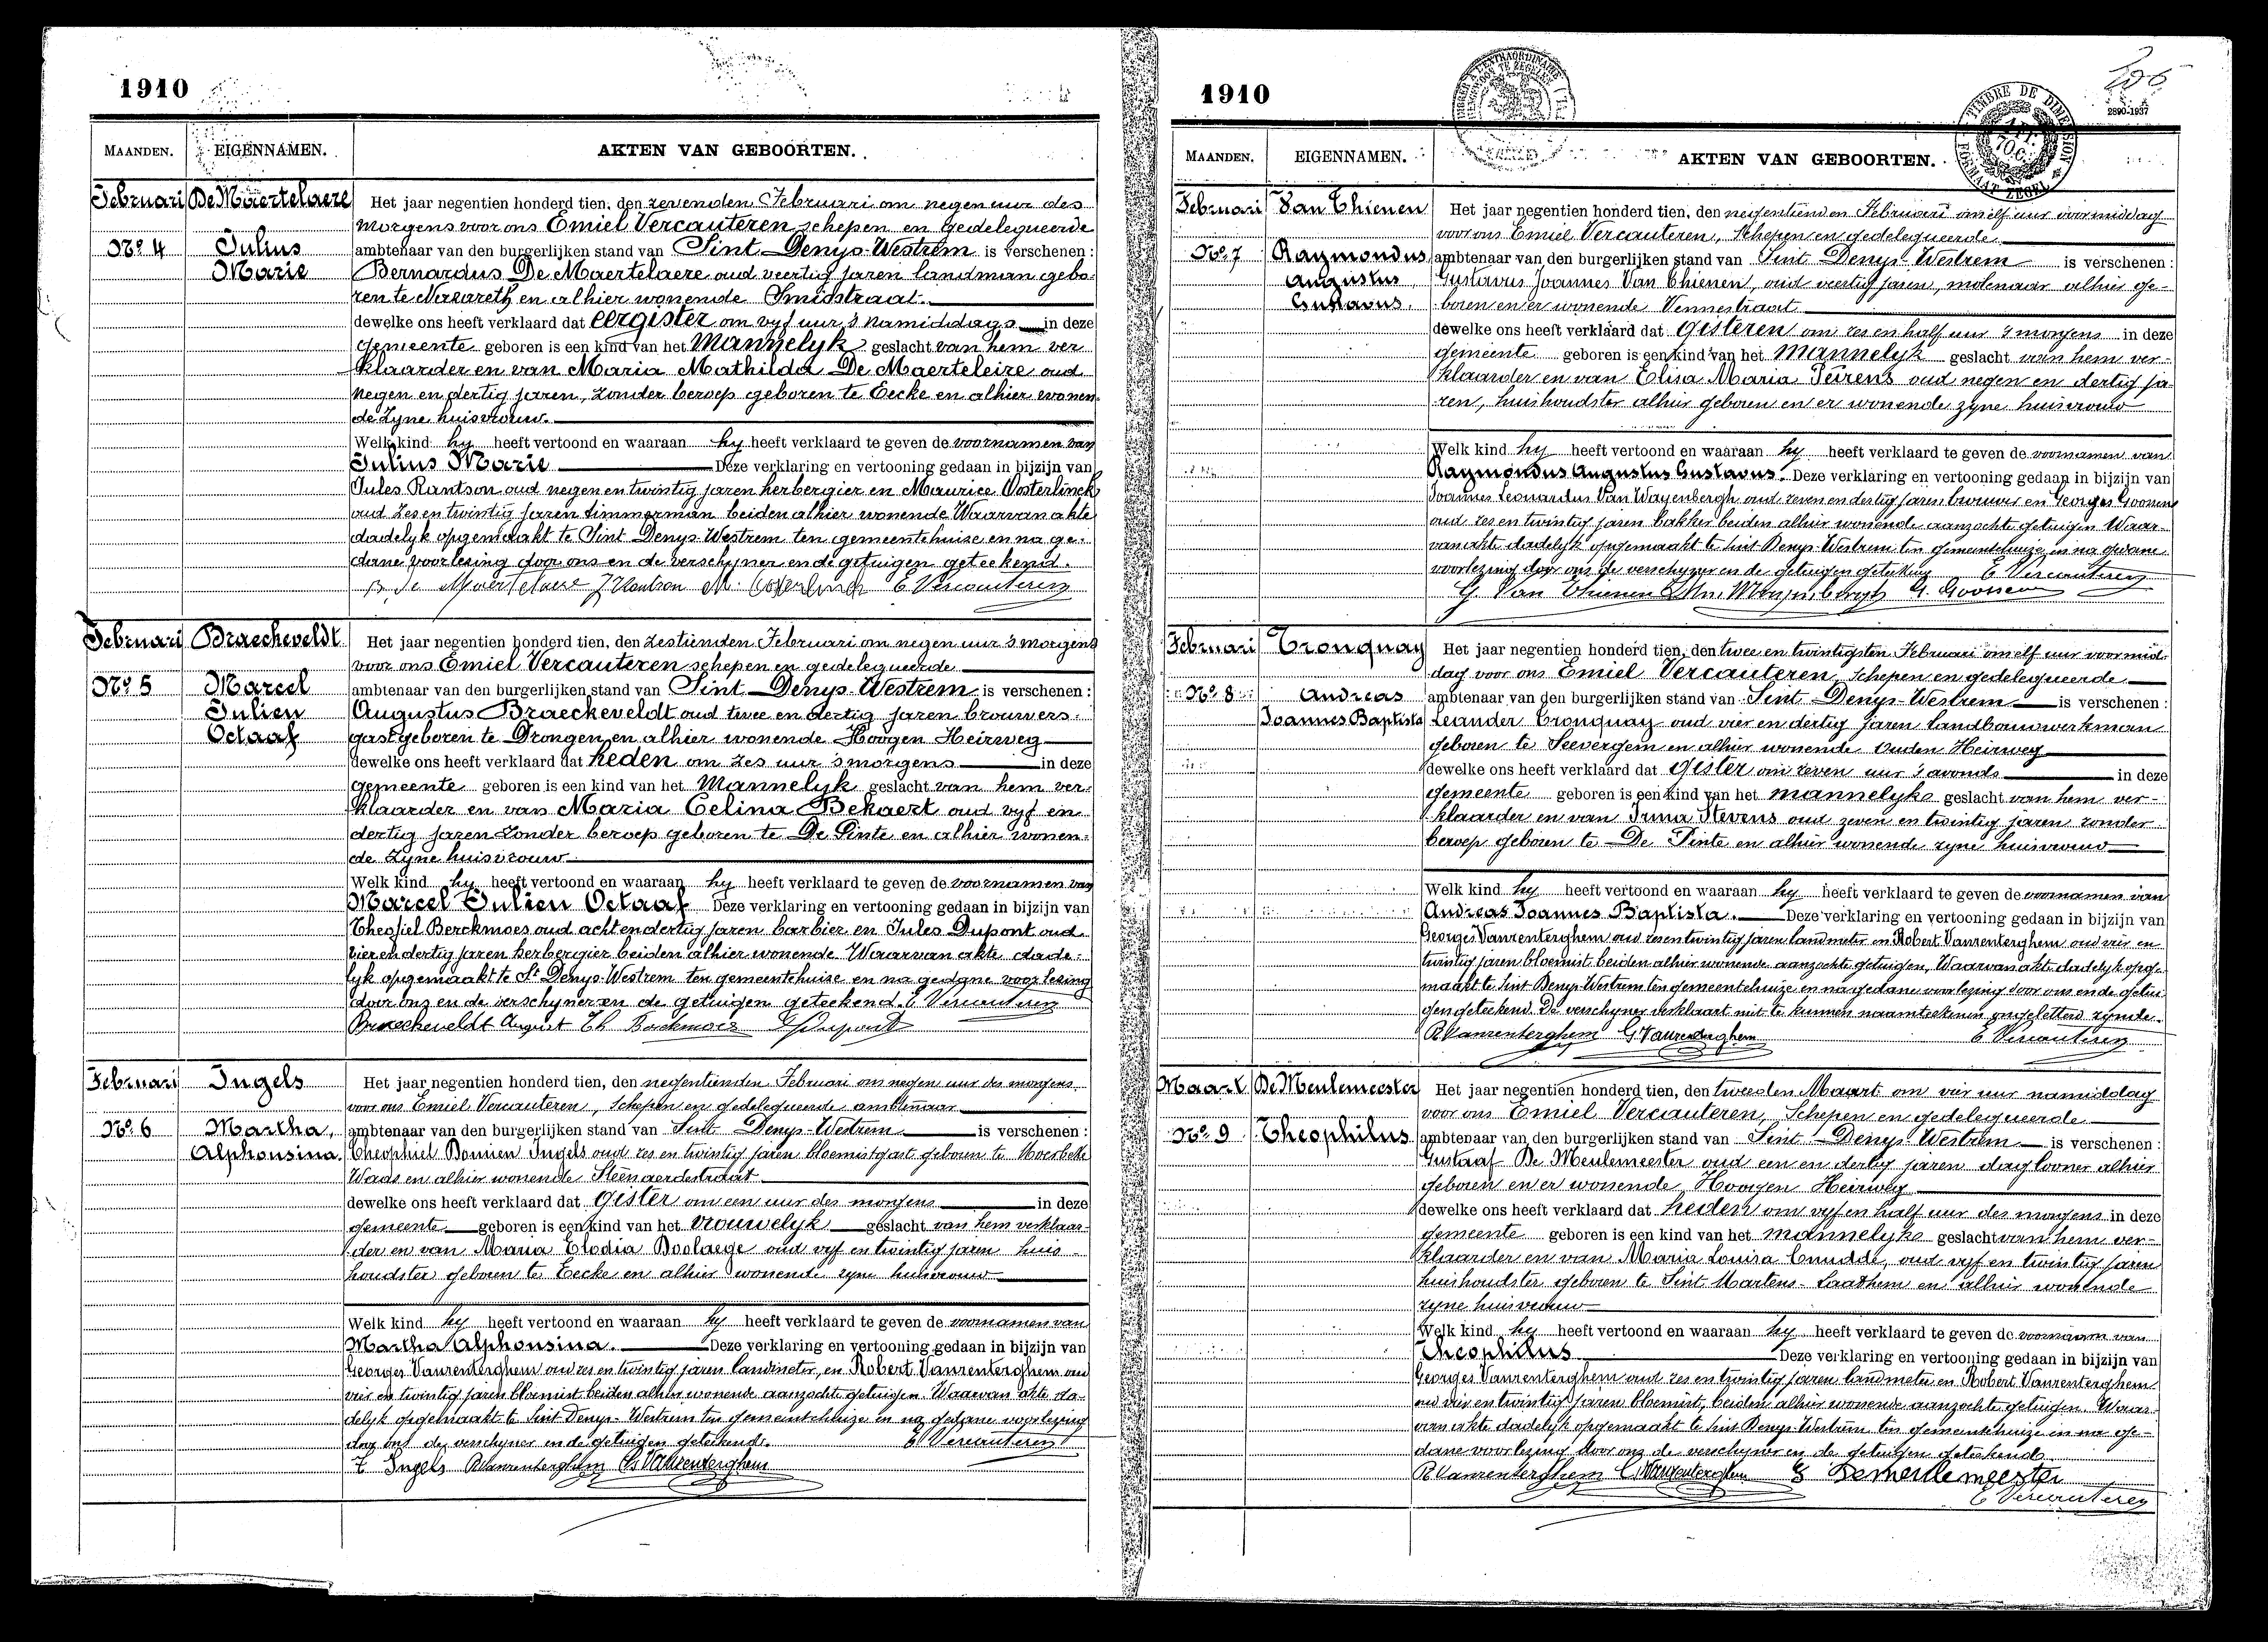 1910
MAANDEN.
EIGENNAMEN.
AKTEN VAN GEBOORTEN.
Februari
De Maertelaere
No. 4
Julius
Marie
Het jaar negentien honderd tien, den zevenden Februari om negen uur des
morgens voor ons Emiel Vercauteren schepen en gedelegueerde
ambtenaar van den burgerlijken stand van Sint-Denys-Westrem is verschenen:
Bernardus De Maertelaere oud veertig jaren landman gebo-
ren te Nazareth en alhier wonende Smidstraat.
dewelke ons heeft verklaard dat eergister om vyf uur 's namiddags in deze
gemeente geboren is een kind van het mannelyk geslacht van hem ver
klaarder en van Maria Mathilda De Maerteleire oud
negen en dertig jaren, zonder beroep geboren te Eecke en alhier wonen-
de zyne huisvrouw.
Welk kind hy heeft vertoond en waaraan hy heeft verklaard te geven de voornamen van
Julius Marie Deze verklaring en vertooning gedaan in bijzijn van
Jules Rantson oud negen en twintig jaren herbergier en Maurice Oosterlinck
oud zes en twintig jaren timmerman beiden alhier wonende Waarvan akte
dadelyk opgemaakt te Sint Denys-Westrem ten gemeentehuise en na ge-
dane voorlezing door ons en de verschyner en de getuigen geteekend.
B. De Maertelaere J Rantson M. Oosterlinck E Vercauteren
Februari
Braeckeveldt
No. 5
Marcel
Julien
Octaaf
Het jaar negentien honderd tien, den zestienden Februari om negen uur 's morgens
voor ons Emiel Vercauteren schepen en gedelegueerde
ambtenaar van den burgerlijken stand van Sint-Denys-Westrem is verschenen:
Augustus Braeckeveldt oud twee en dertig jaren brouwers-
gast geboren te Drongen en alhier wonende Hoogen Heirweg
dewelke ons heeft verklaard dat heden om zes uur 's morgens in deze
gemeente geboren is een kind van het mannelyk geslacht van hem ver-
klaarder en van Maria Celina Bekaert oud vyf en
dertig jaren zonder beroep geboren te De Pinte en alhier wonen-
de zyne huisvrouw
Welk kind hy heeft vertoond en waaraan hy heeft verklaard te geven de voornamen van
Marcel Julien Octaaf Deze verklaring en vertooning gedaan in bijzijn van
Theofiel Berckmoes oud acht en dertig jaren barbier en Jules Dupont oud
vier en dertig jaren herbergier beiden alhier wonende Waarvan akte dade-
lyk opgemaakt te St Denys-Westrem ten gemeentehuise en na gedane voorlezing
door ons en de verschyner en de getuigen geteekend. E Vercauteren
Braeckeveldt August Th Berckmoes J Dupont
Februari
Ingels
No. 6
Martha,
Alphonsina.
Het jaar negentien honderd tien, den negentienden Februari om negen uur des morgens
voor ons Emiel Vercauteren, Schepen en gedelegueerde ambtenaar
ambtenaar van den burgerlijken stand van Sint Denys-Westrem is verschenen:
Theophiel Ingels oud zes en twintig jaren bloemistgast geboren te Moerbeke
Waas en alhier wonende Steenaerdestraat
dewelke ons heeft verklaard dat gister om een uur des morgens in deze
gemeente geboren is een kind van het vrouwelyk geslacht van hem verklaar-
der en van Maria Elodia Boelaege oud vyf en twintig jaren huis-
houdster geboren te Eecke en alhier wonende zyne huisvrouw
Welk kind hy heeft vertoond en waaraan hy heeft verklaard te geven de voornamen van
Martha Alphonsina. Deze verklaring en vertooning gedaan in bijzijn van
Georges Vanrenterghem oud zes en twintig jaren landmeter, en Robert Vanrenterghem oud
vier en twintig jaren bloemist beiden alhier wonende aanzochte getuigen. Waarvan akte da-
delyk opgemaakt te Sint Denys-Westrem ten gemeentehuize en na gedane voorlezing
door ons de verschyner en de getuigen geteekend. E Vercauteren
T Ingels RVanrenterghem G Vanrenterghem
1910
206
2890-1937
TIMBRE DE DIMENSION
FORMAAT ZEGEL
MAANDEN.
EIGENNAMEN.
AKTEN VAN GEBOORTEN.
Februari
Van Thienen
No. 7
Raymondus
Augustus
Gustavus.
Het jaar negentien honderd tien, den negentienden Februari om elf uur voormiddag
voor ons Emiel Vercauteren, Schepen en gedelegueerde
ambtenaar van den burgerlijken stand van Sint Denys-Westrem is verschenen:
Gustavus Joannes Van Thienen, oud veertig jaren, molenaar alhier ge-
boren en er wonende Vennestraat
dewelke ons heeft verklaard dat gisteren om zes en half uur 's morgens in deze
gemeente geboren is een kind van het mannelyk geslacht van hem ver-
klaarder en van Elisa Maria Peirens oud negen en dertig ja-
ren, huishoudster alhier geboren en er wonende zyne huisvrouw
Welk kind hy heeft vertoond en waaraan hy heeft verklaard te geven de voornamen van
Raymondus Augustus Gustavus. Deze verklaring en vertooning gedaan in bijzijn van
Joannes Leonardus Van Wayenbergh oud zeven en dertig jaren brouwer en Georges Goossens
oud zes en twintig jaren bakker beiden alhier wonende aanzochte getuigen Waar-
van akte dadelyk opgemaakt te Sint Denys-Westrem ten gemeentehuize en na gedane
voorlezing door ons de verschyner en de getuigen geteekend E Vercauteren
G. Van Thienen G. Goossens
Februari
Tronquay
No. 8
Andreas
Joannes Baptista
Het jaar negentien honderd tien, den twee en twintigsten Februari om elf uur voormid-
dag voor ons Emiel Vercauteren, Schepen en gedelegueerde
ambtenaar van den burgerlijken stand van Sint Denys-Westrem is verschenen:
Leander Tronquay oud vier en dertig jaren landbouwwerkman
geboren te Seevergem en alhier wonende Ouden Heirweg
dewelke ons heeft verklaard dat gister om zeven uur 's avonds in deze
gemeente geboren is een kind van het mannelyke geslacht van hem ver-
klaarder en van Irma Stevens oud zeven en twintig jaren zonder
beroep geboren te De Pinte en alhier wonende zyne huisvrouw
Welk kind hy heeft vertoond en waaraan hy heeft verklaard te geven de voornamen van
Andreas Joannes Baptista. Deze verklaring en vertooning gedaan in bijzijn van
Georges Vanrenterghem oud zes en twintig jaren landmeter en Robert Vanrenterghem oud vier en
twintig jaren bloemist beiden alhier wonende aanzochte getuigen, Waarvan akte dadelyk opge-
maakt te Sint Denys-Westrem ten gemeentehuize en na gedane voorlezing door ons en de getui-
gen geteekend. De verschyner verklaart niet te kunnen naamteekenen ongeletterd zynde.
RVanrenterghem G Vanrenterghem E Vercauteren
Maart
De Meulemeester
No. 9
Theophilus
Het jaar negentien honderd tien, den tweeden Maart om vier uur namiddag
voor ons Emiel Vercauteren, Schepen en gedelegueerde
ambtenaar van den burgerlijken stand van Sint Denys-Westrem is verschenen:
Gustaaf De Meulemeester oud een en dertig jaren daglooner alhier
geboren en er wonende Hoogen Heirweg
dewelke ons heeft verklaard dat heden om vyf en half uur des morgens in deze
gemeente geboren is een kind van het mannelyke geslacht van hem ver-
klaarder en van Maria Louisa Cnudde, oud vyf en twintig jaren
huishoudster geboren te Sint Martens-Laathem en alhier wonende
zyne huisvrouw
Welk kind hy heeft vertoond en waaraan hy heeft verklaard te geven de voornaam van
Theophilus Deze verklaring en vertooning gedaan in bijzijn van
Georges Vanrenterghem oud zes en twintig jaren landmeter en Robert Vanrenterghem
oud vier en twintig jaren bloemist, beiden alhier wonende aanzochte getuigen. Waar-
van akte dadelyk opgemaakt te Sint Denys-Westrem ten gemeentehuize en na ge-
dane voorlezing door ons de verschyner en de getuigen geteekend
RVanrenterghem G Vanrenterghem G Demeulemeester
E Vercauteren